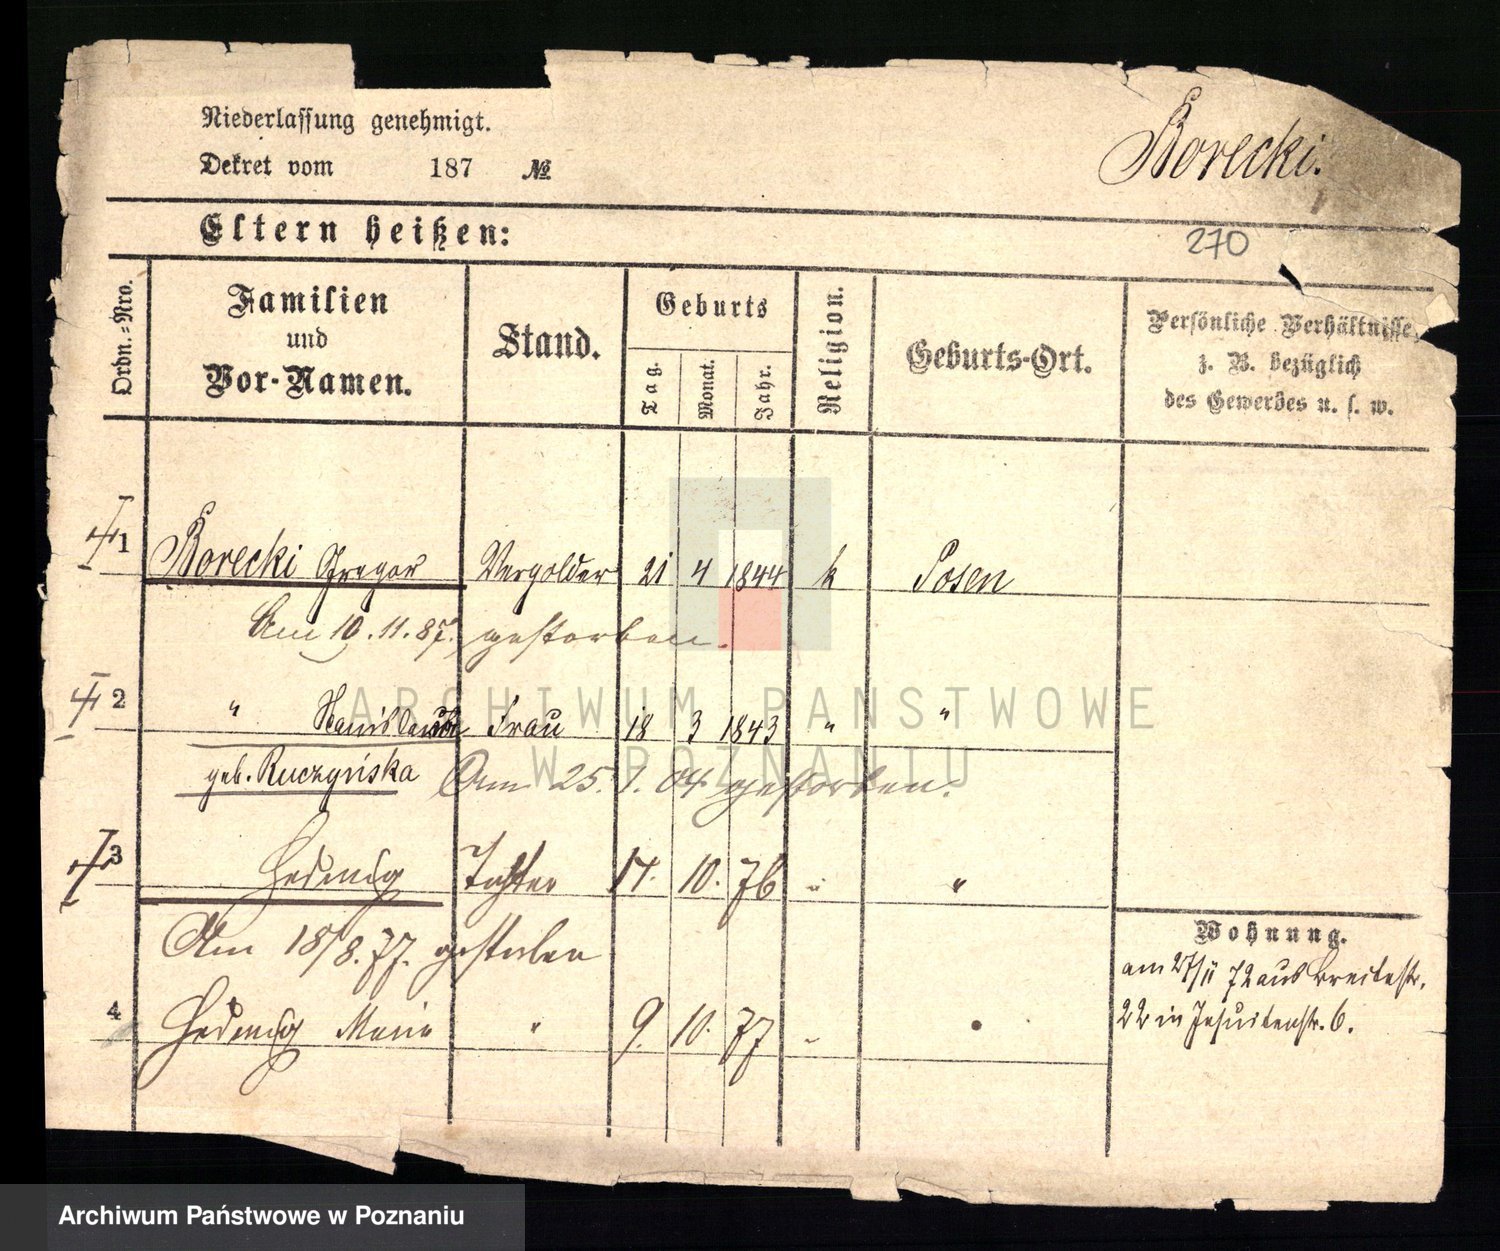 Niederlassung genehmigt.
Borecki.
Dekret vom 187 №
Eltern heißen:
270
Ordn.=Nro.
Familien
und
Vor-Namen.
Stand.
Geburts
Tag.
Monat.
Jahr.
Religion.
Geburts-Ort.
Persönliche Verhältnisse,
z. B. bezüglich
des Gewerbes u. s. w.
1 Borecki Gregor Vergolder 21 4 1844 k Posen
Am 10.11.87. gestorben.
2 " Stanislawa Frau 18 3 1843 " "
geb. Ruczyńska Am 25.1.04 gestorben.
3 Hedwig Tochter 17. 10. 76 " "
Am 18/8.77. gestorben
4 Hedwig Maria " 9. 10. 77 "
Wohnung.
am 27/11 72 aus Breitestr.
22 in Jesuitenstr. 6.
ARCHIWUM PAŃSTWOWE
W POZNANIU
Archiwum Państwowe w Poznaniu